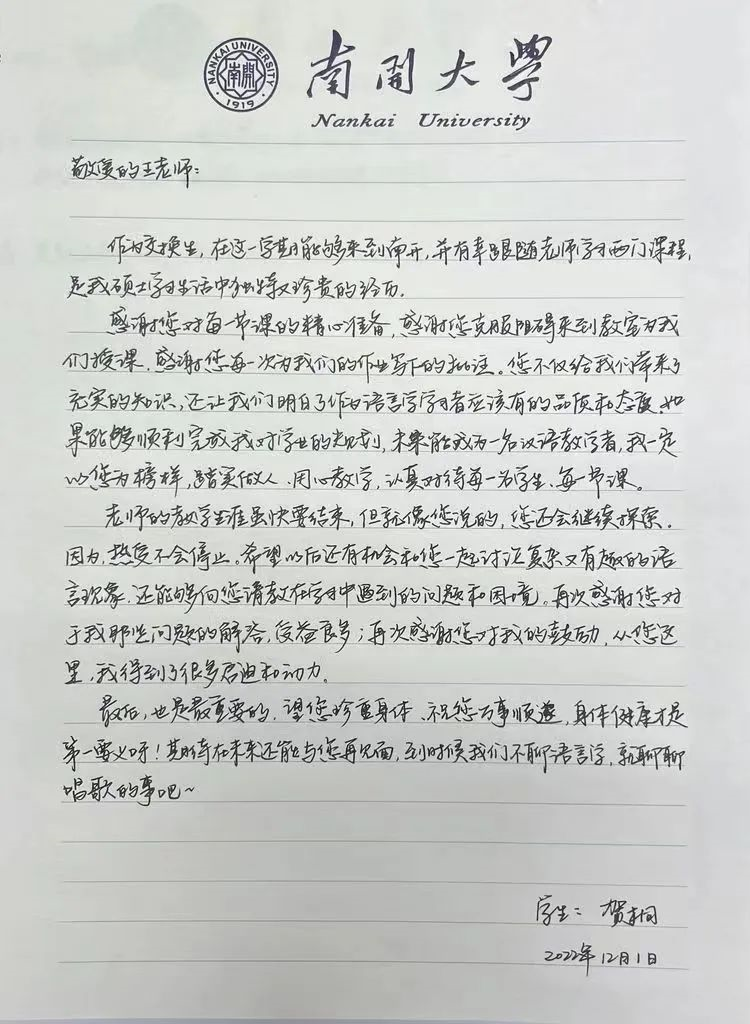 NANKAI UNIVERSITY
南開
1919
南開大學
Nankai University
敬爱的王老师：
作为交换生，在这一学期能够来到南开，并有幸跟随老师学习两门课程，
是我硕士学习生活中独特又珍贵的经历。
感谢您对每一节课的精心准备，感谢您克服阻碍来到教室为我
们授课，感谢您每一次为我们的作业写下的批注。您不仅给我们带来了
充实的知识，还让我们明白了作为语言学学习者应该有的品质和态度。如
果能够顺利完成我对学业的规划，未来能成为一名汉语教学者，我一定
以您为榜样，踏实做人、用心教学，认真对待每一名学生、每一节课。
老师的教学生涯虽快要结束，但就像您说的，您还会继续探索。
因为，热爱不会停止。希望以后还有机会和您一起讨论复杂又有趣的语
言现象，还能够向您请教在学习中遇到的问题和困境。再次感谢您对
于我那些问题的解答，受益良多；再次感谢您对我的鼓励，从您这
里，我得到了很多启迪和动力。
最后，也是最重要的，望您珍重身体、祝您万事顺遂，身体健康才是
第一要义呀！期待在未来还能与您再见面，到时候我们不聊语言学，就聊聊
唱歌的事吧~
学生：贺桐
2022年12月1日